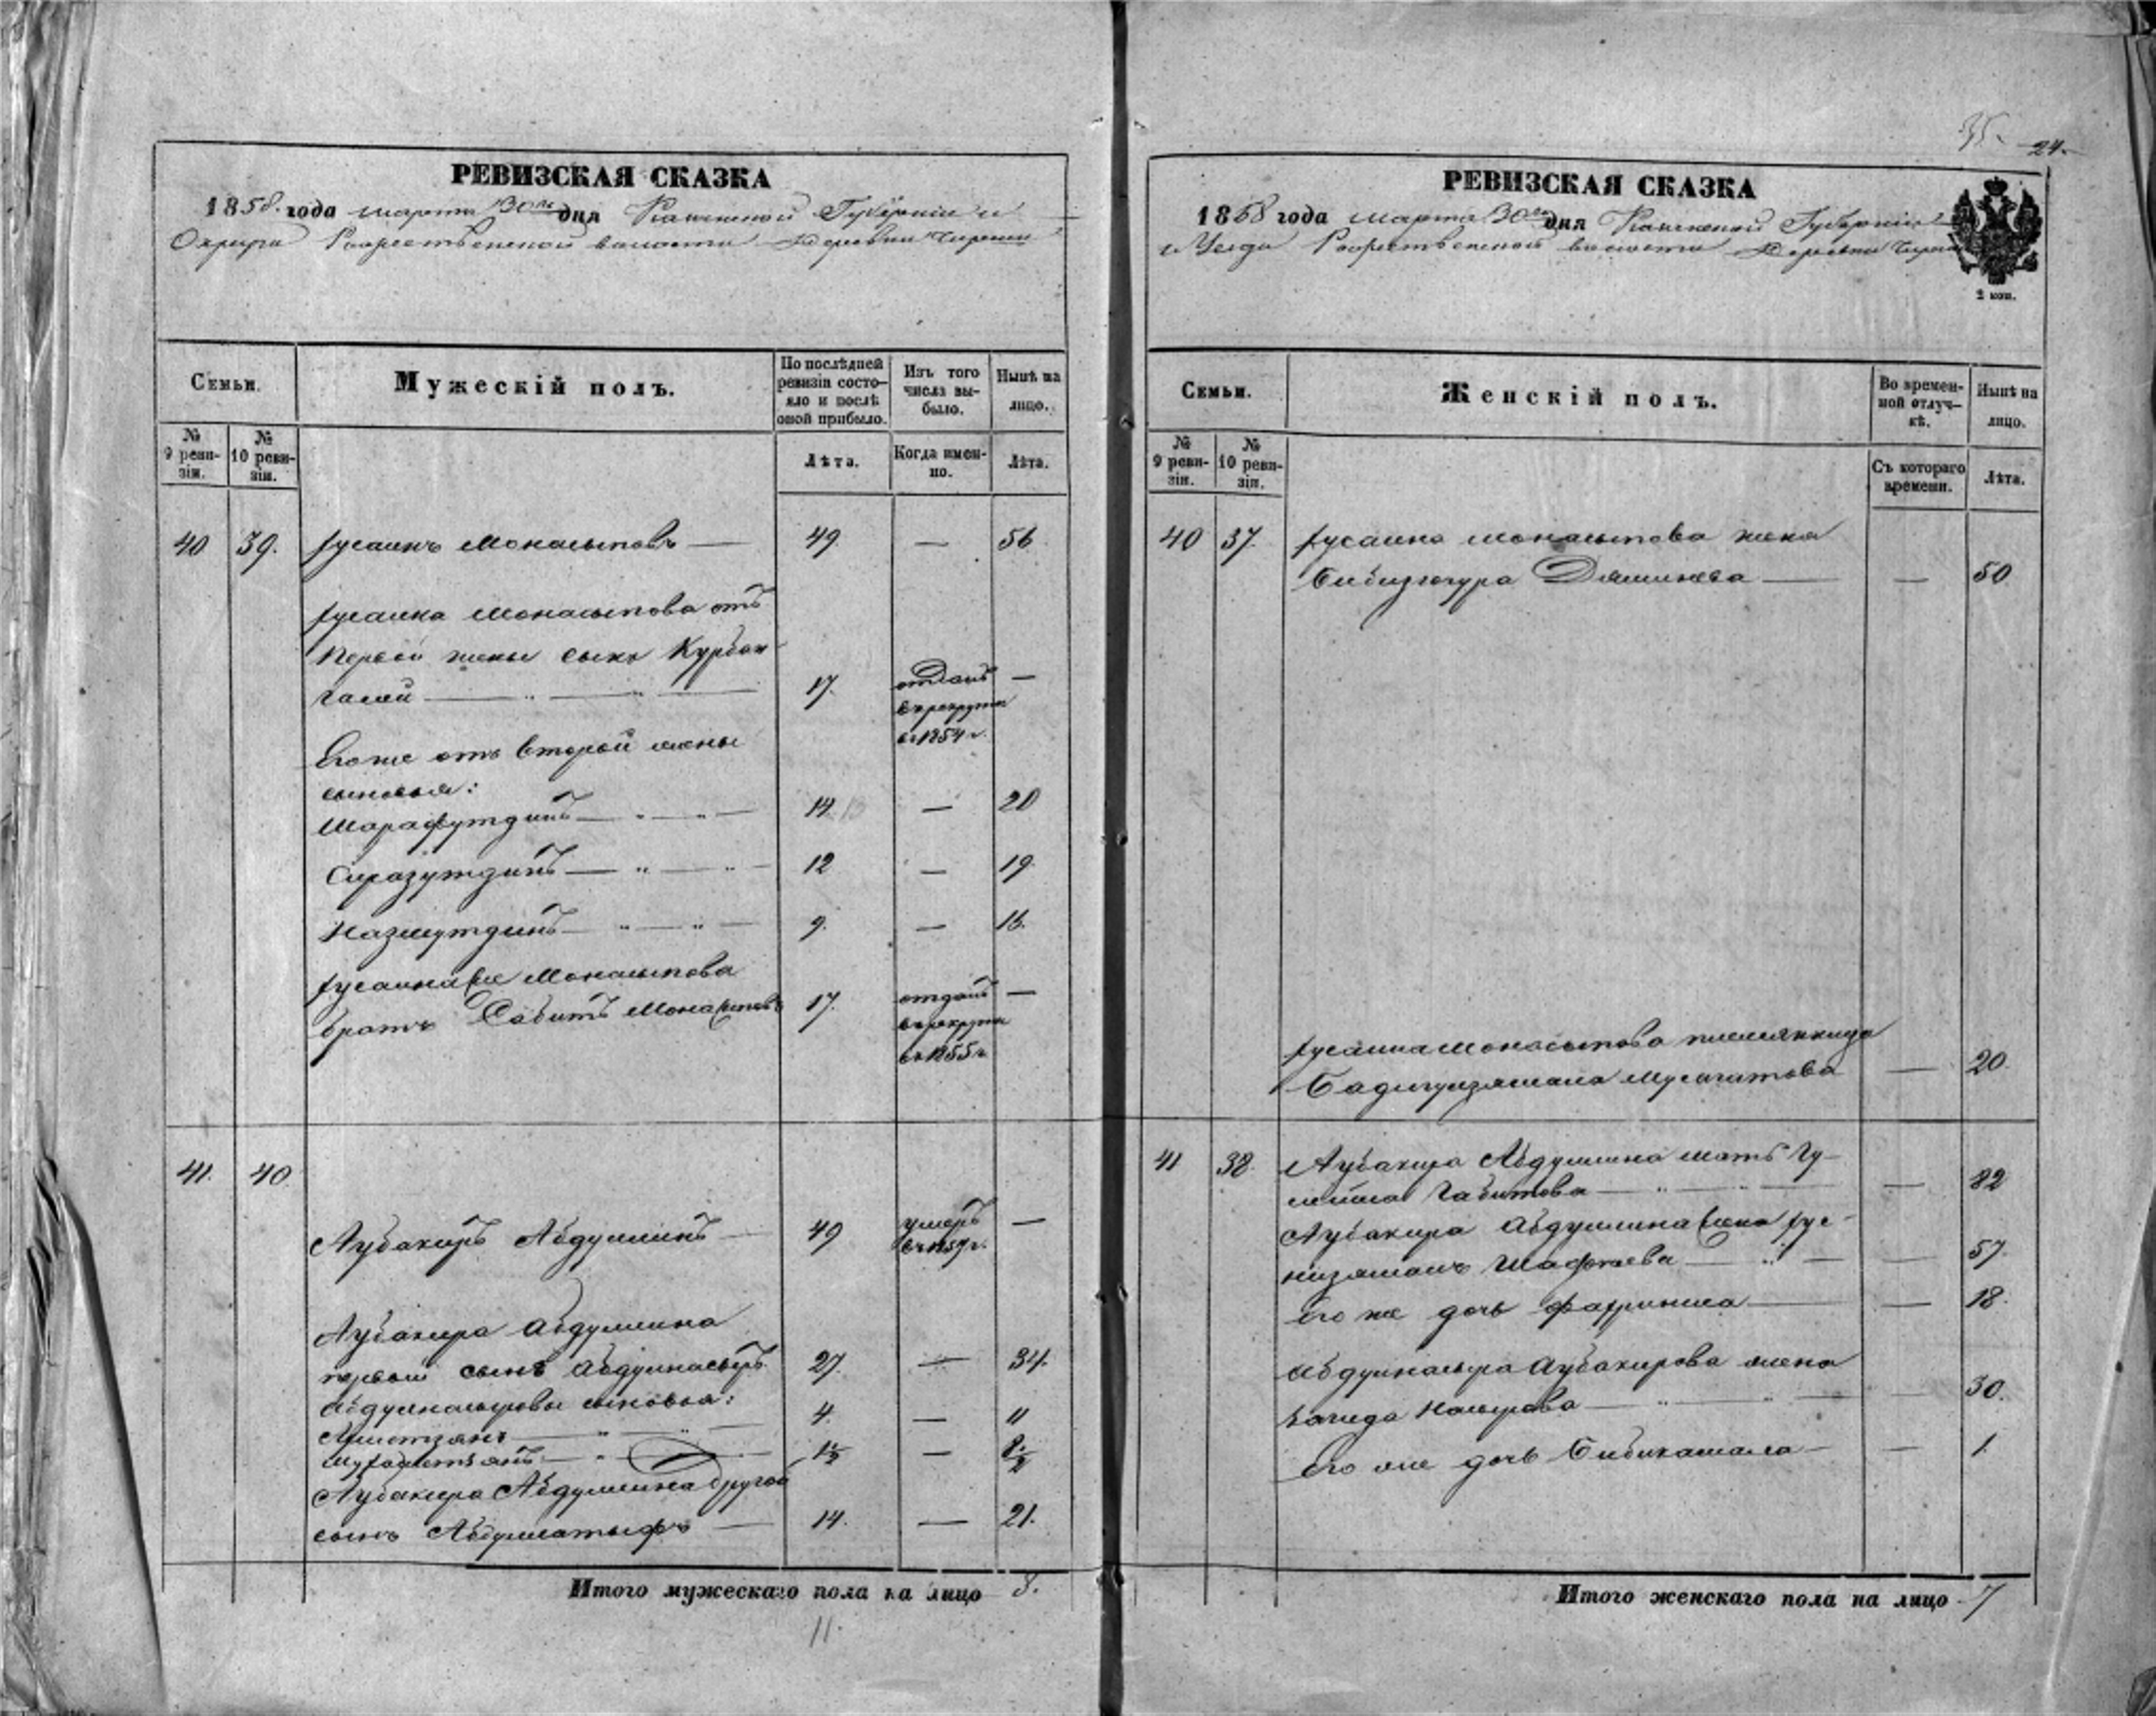 35.
24.
РЕВИЗСКАЯ СКАЗКА
1858 года марта 30 дня Казанской Губерніи и
Округа Рождественской волости Деревни
Семьи.
Мужескій полъ.
По послѣдней ревизіи состо-
яло и послѣ
оной прибыло.
Изъ того
числа вы-
было.
Нынѣ на
лицо.
№
9 реви-
зіи.
№
10 реви-
зіи.
Лѣта.
Когда имен-
но.
Лѣта.
40 39. Хусаинъ Монасыповъ — 49. — 56
Хусаина Монасыпова отъ
первой жены сынъ Курбан
галей — 17. отданъ —
въ рекруты
въ 1854 г.
Его же отъ второй жены
сыновья:
Шарафутдинъ — 14. 13 — 20
Сиразутдинъ — 12 — 19.
Назмутдинъ — 9. — 16.
Хусаина же Монасыпова
братъ Сабитъ Монасыповъ 17. отданъ —
въ рекруты
въ 1855 г.
41. 40.
Аубакиръ Абдуллинъ — 49 умеръ —
въ 1857 г.
Аубакира Абдуллина
первый сынъ Абдулнасыръ 27. — 34.
Абдулнасыровы сыновья:
4. — 11
1 1/2 — 8 1/2
Аубакира Абдуллина другой
сынъ Абдуллатыфъ — 14. — 21.
Итого мужескаго пола на лицо 8.
11.
РЕВИЗСКАЯ СКАЗКА
1858 года марта 30 дня Казанской Губерніи
и Уезда Рождественской волости Деревни
2 коп.
Семьи.
Женскій полъ.
Во времен-
ной отлуч-
кѣ.
Нынѣ на
лицо.
№
9 реви-
зіи.
№
10 реви-
зіи.
Съ котораго
времени.
Лѣта.
40 37. Хусаина Монасыпова жена
— 50
Хусаина Монасыпова племянница
Бадигулзямала Мусагатова — 20.
41 38. Аубакира Абдуллина мать Гу-
Габитова — 82
Аубакира Абдуллина жена Хус-
низямалъ Шафѣева — 57.
Его же дочь Фахриниса — 18.
Абдулнасыра Аубакирова жена
Загида Насырова — 30.
Его же дочь Бибикамала — 1.
Итого женскаго пола на лицо 7